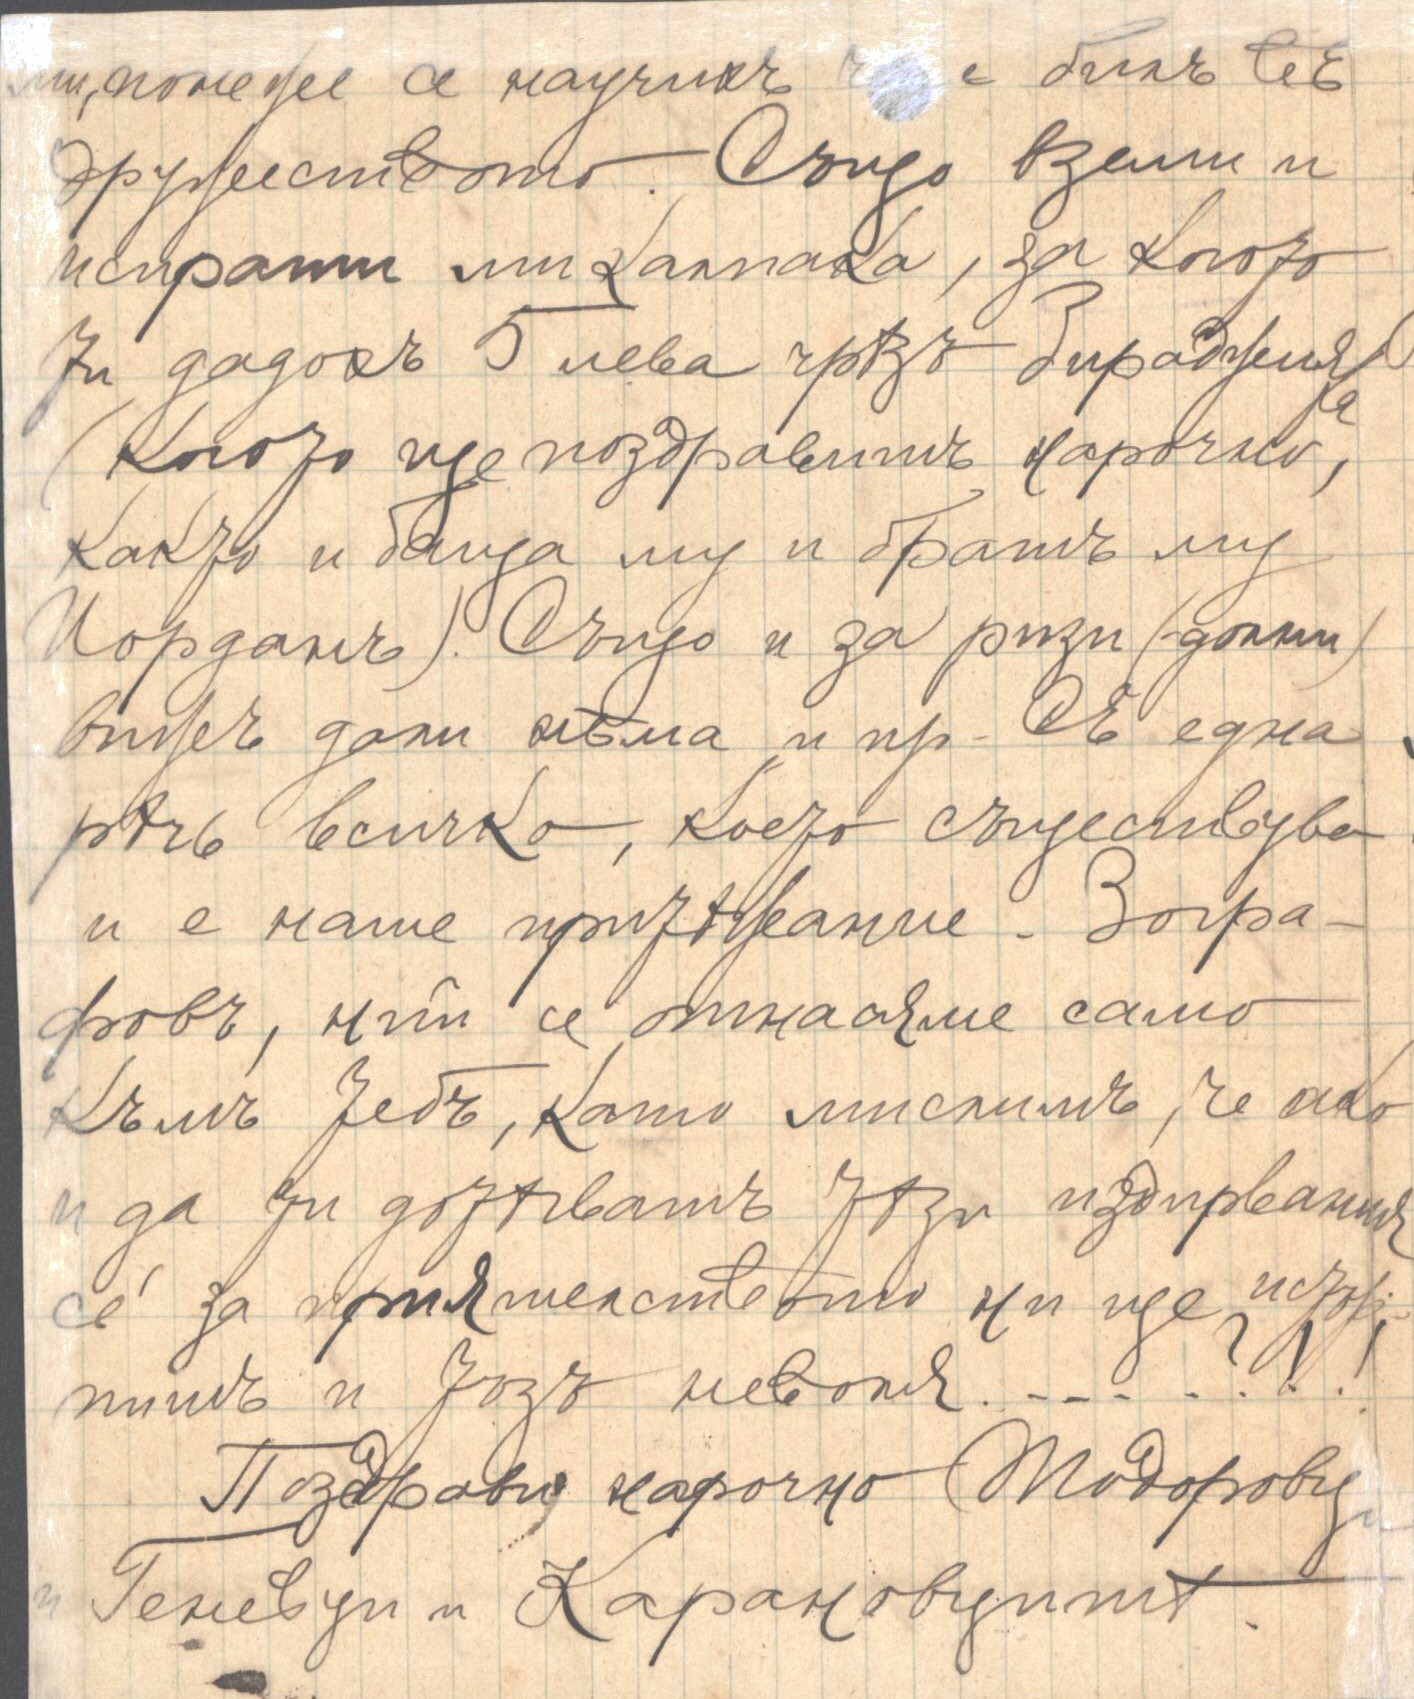 ми, понеже се научихъ че е билъ въ
дружеството. Също вземи и
испрати ми калпака, за когото
ти дадохъ 5 лева чрѣзъ Бираджията
(когото ще поздравишъ нарочно,
както и баща му и братъ му
Йорданъ). Също и за ризи (долни)
вижъ дали нѣма и пр. Съ една
рѣчь всичко, което сѫществува
и е наше притѣжание. Зогра-
фовъ, ний се отнасяме само
къмъ тебъ, като мислимъ, че ако
и да ти дотѣгватъ тѣзи издирвания
се за приятелството ни ще истър-
пишъ и тозъ неволя. - - - . . ? ! !
Поздрави нарочно Тодоровци
и Геневци и Карановцитѣ.